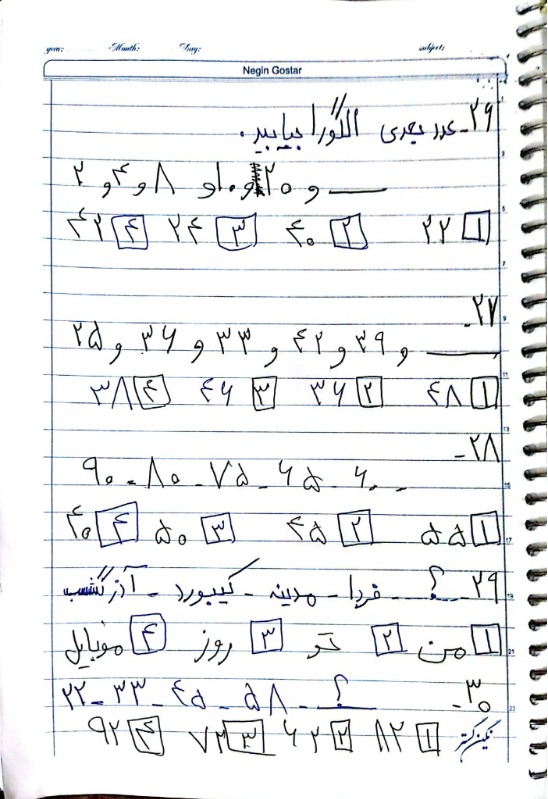 year: Month: Day: subject:
Negin Gostar
۲۹_ عدد بعدی الگو را بیابید.
۲ و ۴ و ۸ و ۱۰ و ۲۰ و ____
۱ ۲۲ ۲ ۴۰ ۳ ۲۴ ۴ ۴۲
۲۷_
۲۵ و ۳۶ و ۳۳ و ۴۲ و ۳۹ و ____
۱ ۴۸ ۲ ۳۶ ۳ ۴۶ ۴ ۳۸
۲۸_
۹۰ _ ۸۰ _ ۷۵ _ ۶۵ _ ۶۰ _
۱ ۵۵ ۲ ۴۵ ۳ ۵۰ ۴ ۴۰
۲۹_ ؟ _ فردا _ مدینه _ کیبورد _ آذرگشسب
۱ من ۲ تو ۳ روز ۴ موبایل
۳۰_
۲۲ _ ۳۳ _ ۴۵ _ ۵۸ _ ؟
۱ ۸۲ ۲ ۶۲ ۳ ۷۲ ۴ ۹۲
نگین گستر